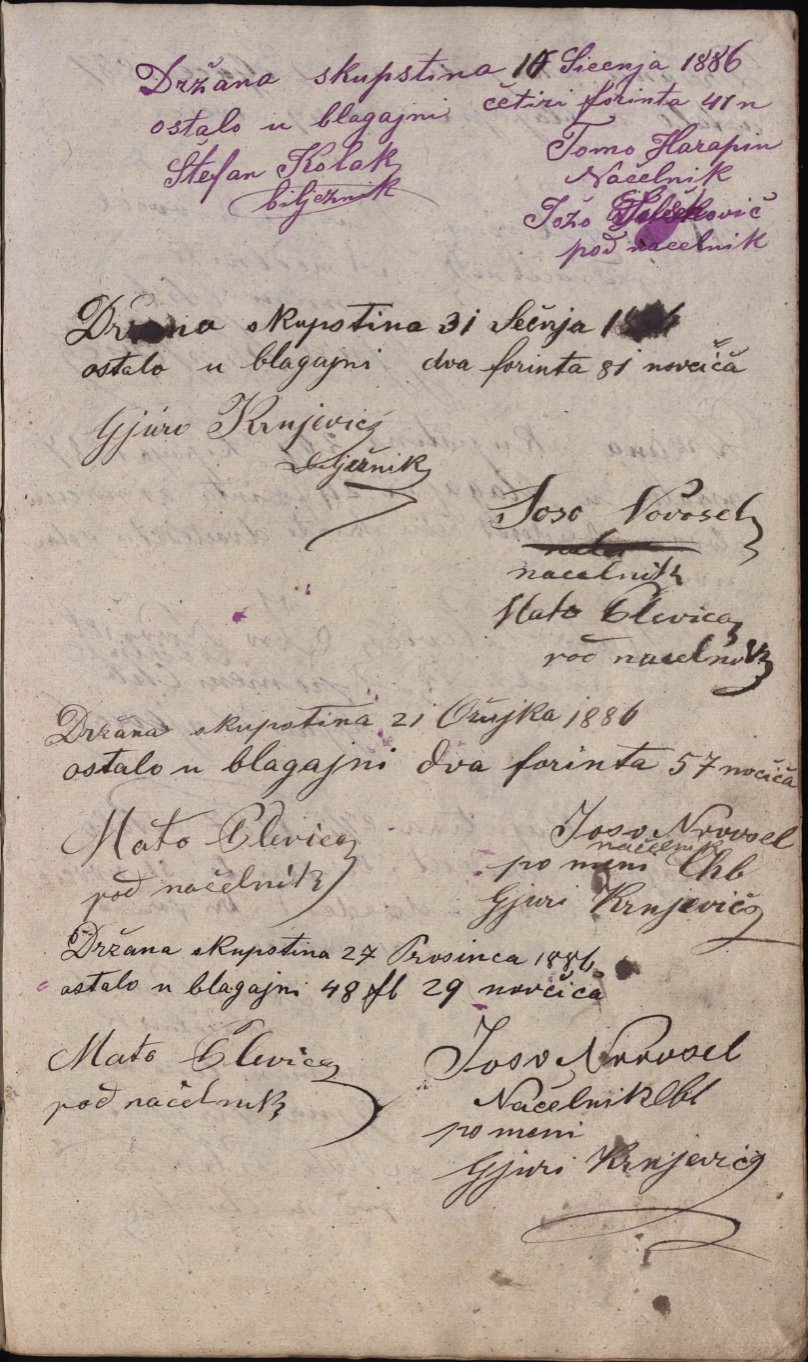 Držana skupstina 10 Siecnja 1886
ostalo u blagajni četiri forinta 41 n
Štefan Kolak
biljeznik
Tomo Harapin
Načelnik
Jožo
pod nacelnik
skupstina 31 Sečnja
ostalo u blagajni dva forinta 81 novčića
Gjuro Krnjević
Joso Novosel
nacelnik
Mato Clevica
pod nacelnik
Držana skupstina 21 Ožujka 1886
ostalo u blagajni dva forinta 57 nočića
Mato Clevica
pođ načelnik
Joso Novosel
načelnik
po meni
Gjuri Krnjević
Držana skupstina 27 Prosinca 1886
ostalo u blagajni 48 fl 29 novčića
Mato Clevica
pođ načelnik
Joso Novosel
Načelnik
po meni
Gjuri Krnjević